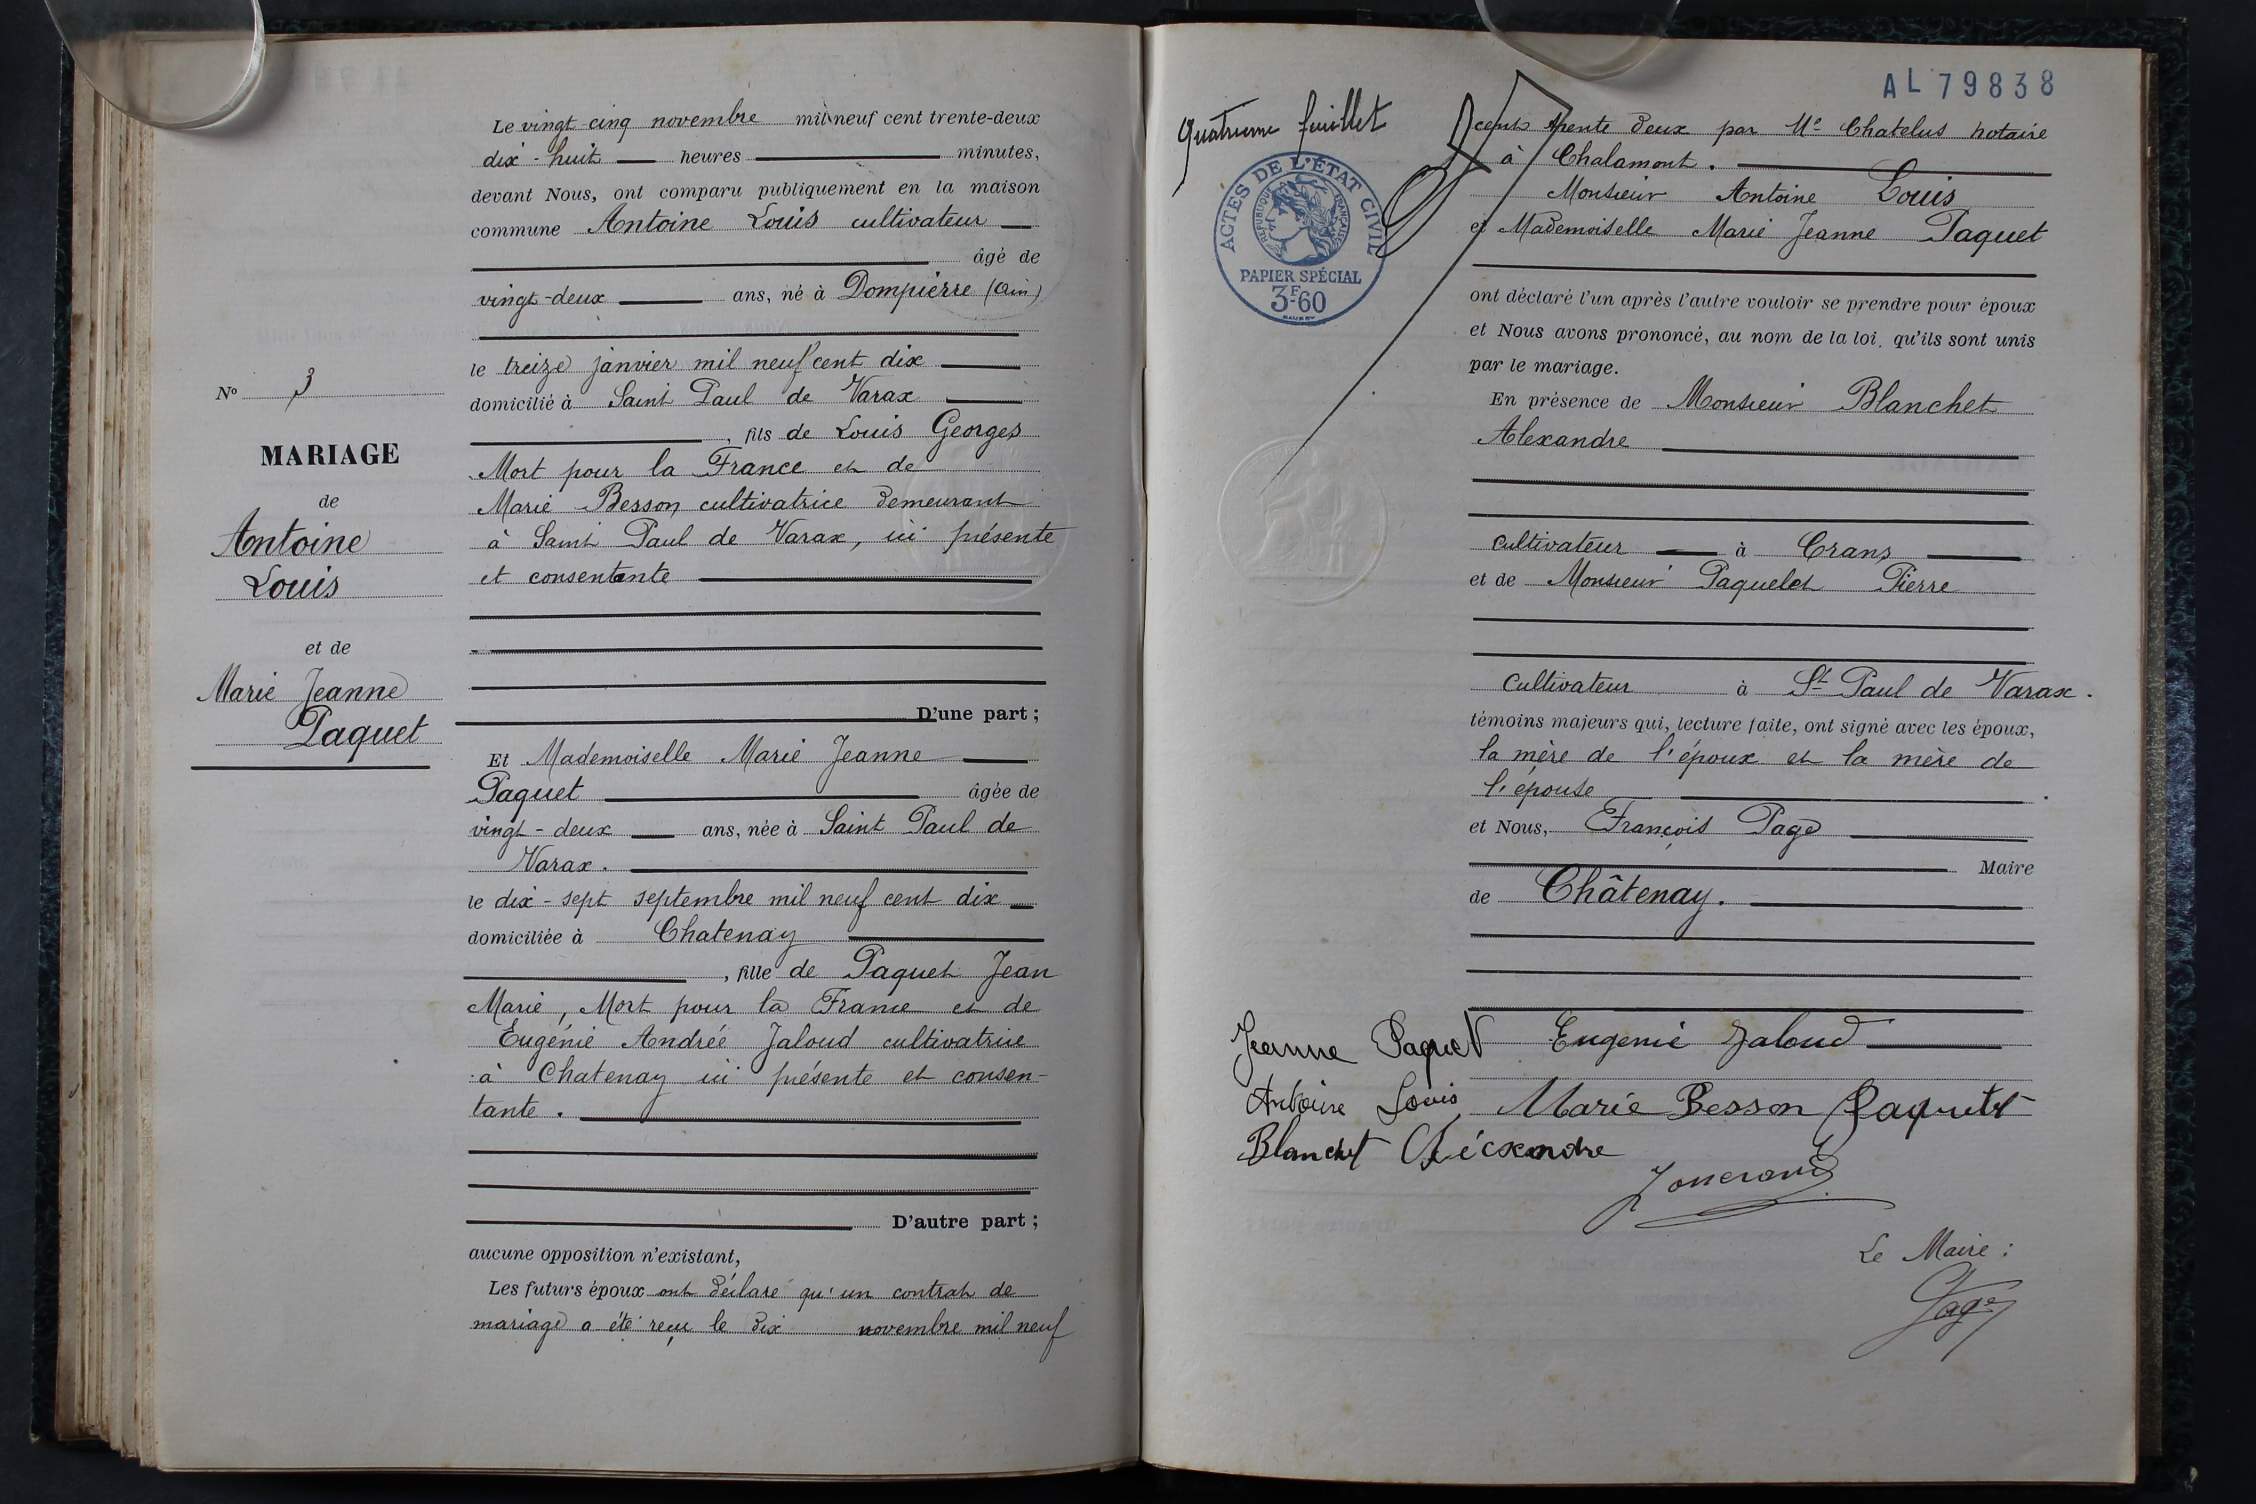 Le vingt-cinq novembre mil neuf cent trente-deux
dix-huit heures minutes,
devant Nous, ont comparu publiquement en la maison
commune Antoine Louis cultivateur
âgé de
vingt-deux ans, né à Dompierre (Ain)
le treize janvier mil neuf cent dix
domicilié à Saint Paul de Varax
, fils de Louis Georges
Mort pour la France et de
Marie Besson cultivatrice demeurant
à Saint Paul de Varax, ici présente
et consentante
D'une part ;
Nº 3
MARIAGE
de
Antoine
Louis
et de
Marie Jeanne
Paquet
Et Mademoiselle Marie Jeanne
Paquet âgée de
vingt-deux ans, née à Saint Paul de
Varax.
le dix-sept septembre mil neuf cent dix
domiciliée à Chatenay
, fille de Paquet Jean
Marie, Mort pour la France et de
Eugénie Andrée Jaloud cultivatrice
à Chatenay ici présente et consen-
tante.
D'autre part ;
aucune opposition n'existant,
Les futurs époux ont déclaré qu'un contrat de
mariage a été reçu le dix novembre mil neuf
AL 79838
quatrième feuillet
ACTES DE L'ÉTAT CIVIL
RÉPUBLIQUE FRANÇAISE
PAPIER SPÉCIAL
3F-60
cent trente deux par Me Chatelus notaire
à Chalamont.
Monsieur Antoine Louis
et Mademoiselle Marie Jeanne Paquet
ont déclaré l'un après l'autre vouloir se prendre pour époux
et Nous avons prononcé, au nom de la loi, qu'ils sont unis
par le mariage.
En présence de Monsieur Blanchet
Alexandre
cultivateur à Crans
et de Monsieur Paquelet Pierre
cultivateur à St Paul de Varax.
témoins majeurs qui, lecture faite, ont signé avec les époux,
la mère de l'époux et la mère de
l'épouse
et Nous, François Pagé
Maire
de Châtenay.
Jeanne Paquet Eugenie Jaloud
Antoine Louis Marie Besson
Blanchet
Le Maire :
Pagé